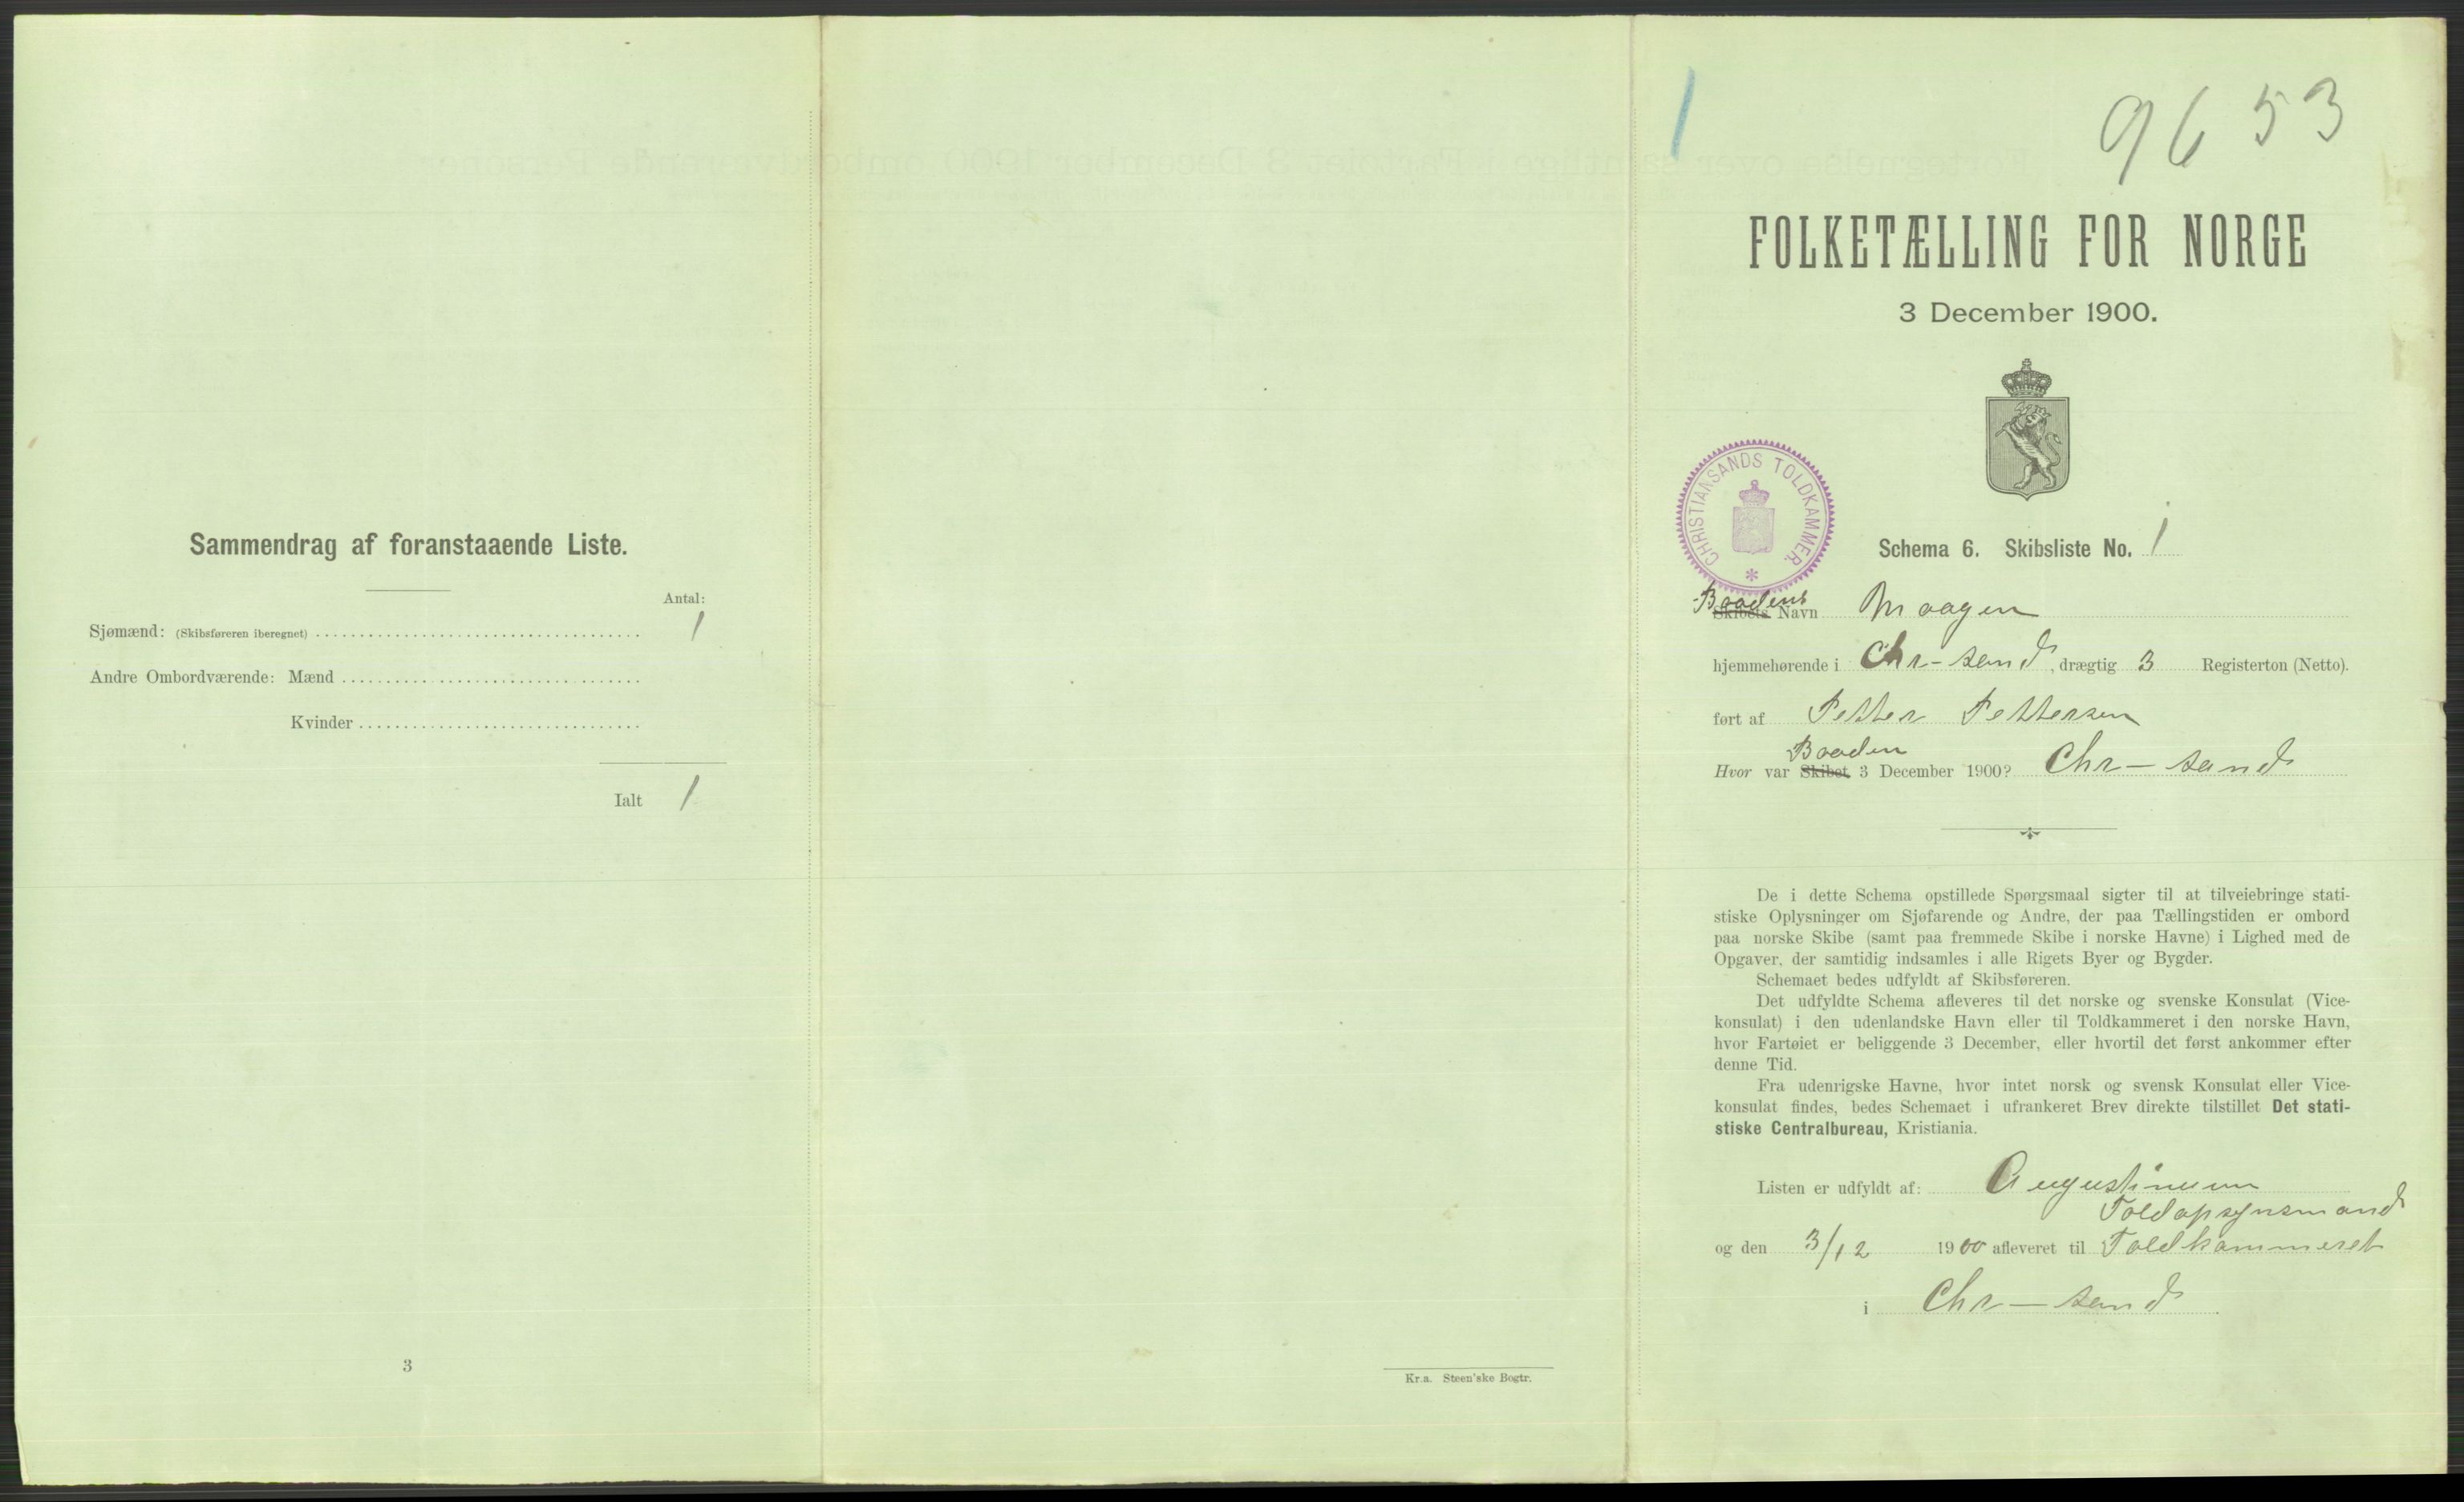 Sammendrag af foranstaaende Liste.
Antal:
Sjømænd: (Skibsføreren iberegnet) 1
Andre Ombordværende: Mænd
Kvinder
Ialt 1
3
Kr.a. Steen'ske Bogtr.
1
9653
FOLKETÆLLING FOR NORGE
3 December 1900.
CHRISTIANSANDS TOLDKAMMER.
Schema 6. Skibsliste No. 1
Baadens
Skibets Navn Maagen
hjemmehørende i Chr-sand, drægtig 3 Registerton (Netto).
ført af Petter Pettersen
Baaden
Hvor var Skibet 3 December 1900? Chr-sand
De i dette Schema opstillede Spørgsmaal sigter til at tilveiebringe stati-
stiske Oplysninger om Sjøfarende og Andre, der paa Tællingstiden er ombord
paa norske Skibe (samt paa fremmede Skibe i norske Havne) i Lighed med de
Opgaver, der samtidig indsamles i alle Rigets Byer og Bygder.
Schemaet bedes udfyldt af Skibsføreren.
Det udfyldte Schema afleveres til det norske og svenske Konsulat (Vice-
konsulat) i den udenlandske Havn eller til Toldkammeret i den norske Havn,
hvor Fartøiet er beliggende 3 December, eller hvortil det først ankommer efter
denne Tid.
Fra udenrigske Havne, hvor intet norsk og svensk Konsulat eller Vice-
konsulat findes, bedes Schemaet i ufrankeret Brev direkte tilstillet Det stati-
stiske Centralbureau, Kristiania.
Listen er udfyldt af:
Toldopsynsmand
og den 3/12 1900 afleveret til Toldkammeret
i Chr-sand.